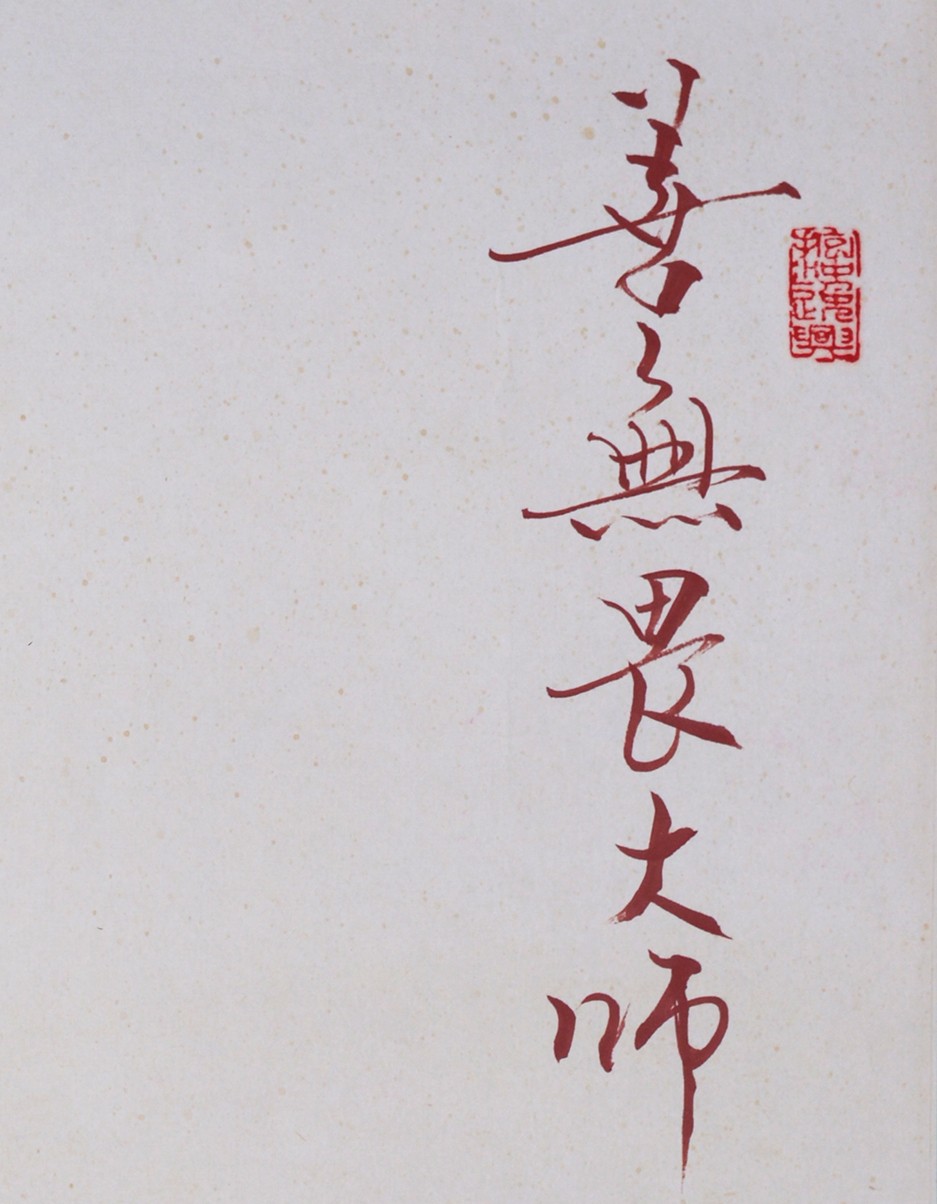 善無畏大師